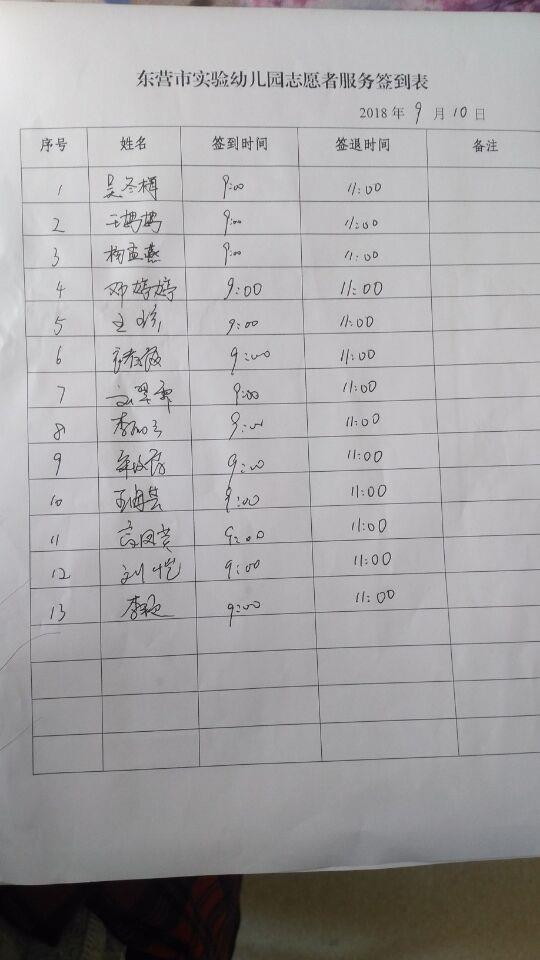 东营市实验幼儿园志愿者服务签到表
2018 年 9 月 10 日
序号 姓名 签到时间 签退时间 备注
1 吴冬梅 9:00 11:00
2 王鸭鸭 9:00 11:00
3 杨孟燕 9:00 11:00
4 邓婷婷 9:00 11:00
5 王 9:00 11:00
6 9:00 11:00
7 9:00 11:00
8 李 9:00 11:00
9 9:00 11:00
10 9:00 11:00
11 9:00 11:00
12 刘恺 9:00 11:00
13 李颖 9:00 11:00